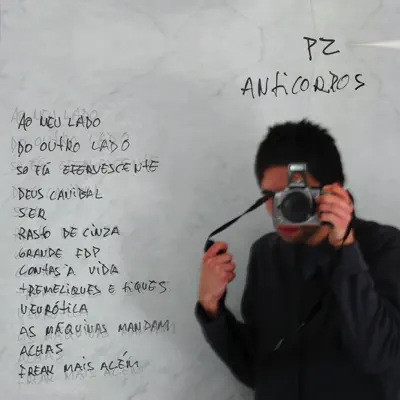 PZ
ANTICORPOS
AO MEU LADO
DO OUTRO LADO
SÓ FÃ EFERVESCENTE
DEUS CANIBAL
SER
RASTO DE CINZA
GRANDE FDP
CONTAS À VIDA
TREMELIQUES E TIQUES
NEURÓTICA
AS MÁQUINAS MANDAM
ACHAS
FREAK MAIS ALÉM